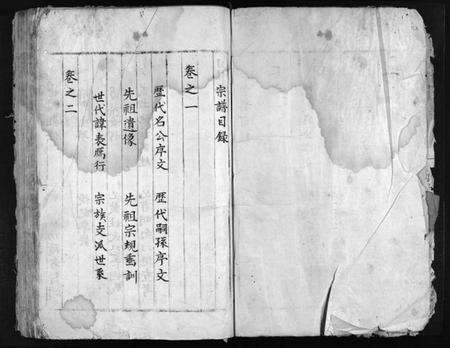 宗譜目錄
卷之一
歷代名公序文 歷代嗣孫序文
先祖遺像 先祖宗規垂訓
世代諱表鴈行 宗族支派世系
卷之二